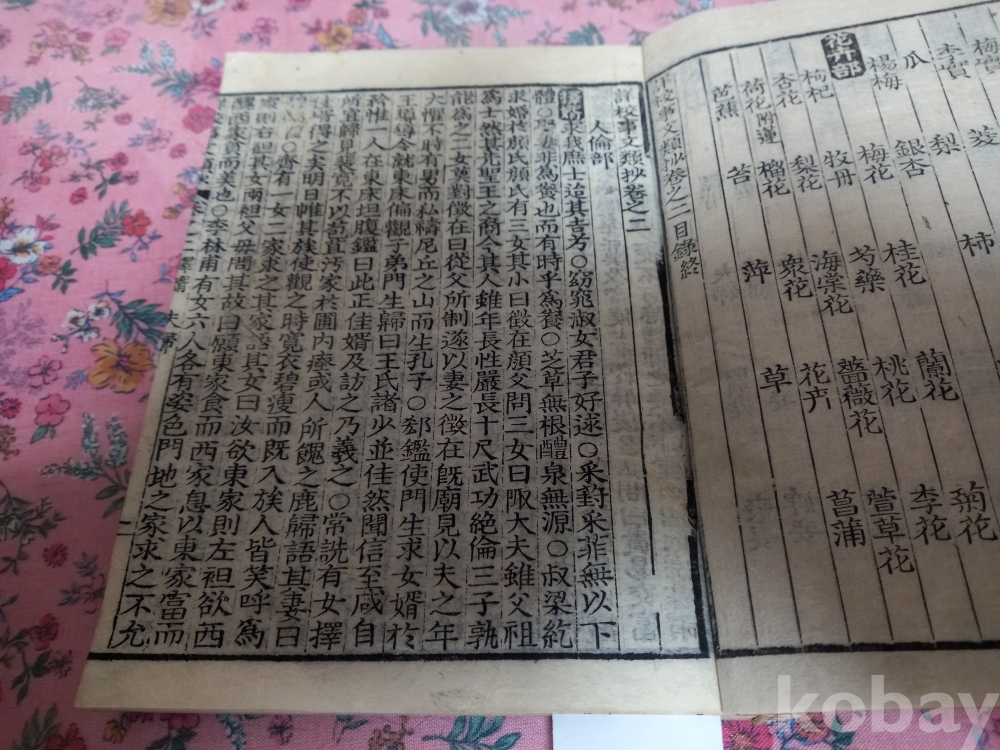 梅實 菱 柿 菊花
李實 梨 蘭花 李花
瓜 銀杏 桂花 桃花 萱草花
楊梅 梅花 芍藥 薔薇花 菖蒲
花卉部 牧丹 海棠花 花卉
枸杞 梨花 衆花 草
杏花 榴花 萍
荷花附蓮 苔
芭蕉
校事文類抄卷之二目錄終
詳校事文類抄卷之二
人倫部
求我庶士迨其吉兮○窈窕淑女君子好逑○采葑采菲無以下
體○娶妻非爲養也而有時乎爲養○芝草無根醴泉無源○叔梁紇
求婚於顔氏顔氏有三女其小曰徵在顔父問三女曰陬大夫雖父祖
爲士然其先聖王之裔今其人雖年長性嚴長十尺武功絶倫三子孰
能爲之二女莫對徵在曰從父所制遂以妻之徵在旣廟見以夫之年
大懼不時有男而私禱尼丘之山而生孔子○郄鑑使門生求女婿於
王導導令就東床徧觀子弟門生歸曰王氏諸少並佳然聞信至咸自
矜惟一人在東床坦腹鑑曰此正佳婿及訪之乃羲之○常詵有女擇
所宜歸見裴寬不以苞苴汚家於圃內瘞或人所餽之鹿歸語其妻曰
婿得之矣明日帷其族使觀之時寬衣碧瘦而旣入族人皆笑呼爲
○齊有一女二家求之其家語其女曰汝欲東家則左袒欲西
家則右袒其女兩袒父母問其故曰願東家食而西家息以東家富而
醜西家貧而美也○李林甫有女六人各有姿色門地之家求之不允
kobay